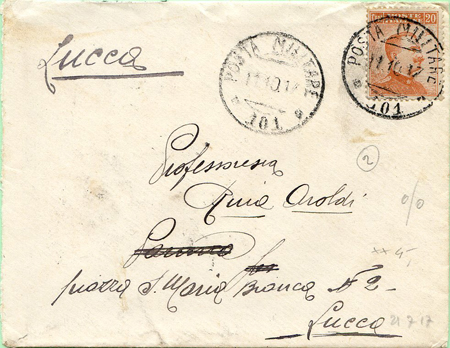 Lucca
POSTA MILITARE
11.10.17
101
20
POSTA MILITARE
11.10.17
101
2
Professoressa
Rina Aroldi
%
piazza S. Maria Bianca N° 2 -
Lucca
21 7 17